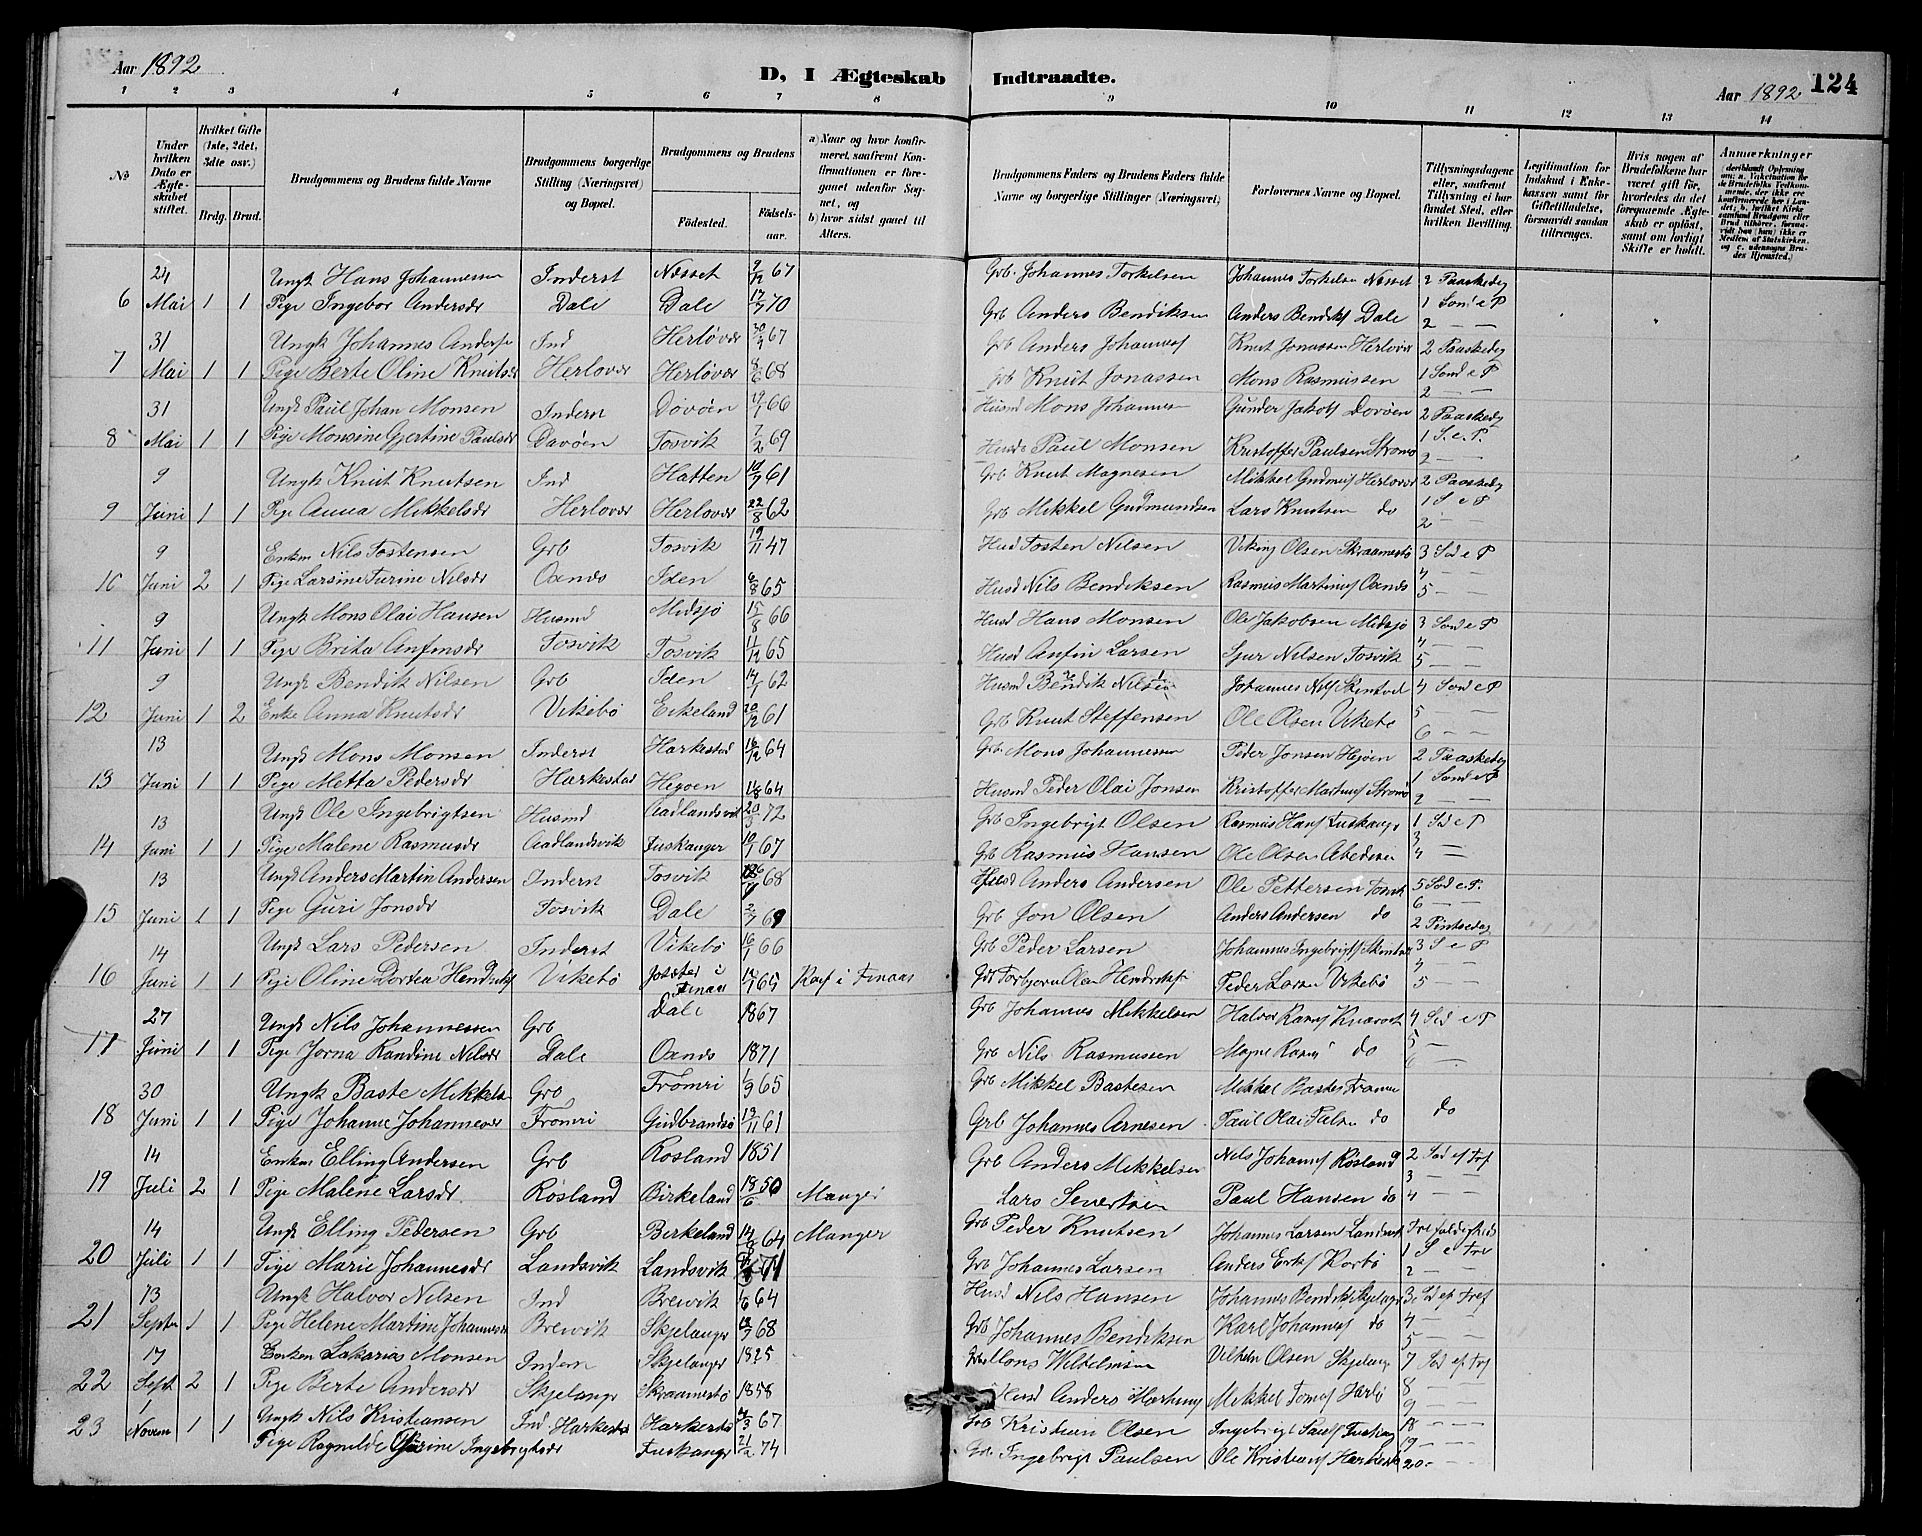 Aar 1892
D, I Ægteskab Indtraadte.
Aar 1892
124
1 2 3 4 5 6 7 8 9 10 11 12 13 14
No
Under hvilken Dato er Ægteskabet stiftet.
Hvilket Gifte (1ste, 2det, 3die osv.)
Brdg. Brud.
Brudgommens og Brudens fulde Navne
Brudgommens borgerlige Stilling (Næringsvei) og Bopæl.
Brudgommens og Brudens
Fødested. Fødsels-aar.
a) Naar og hvor konfirmeret, saafremt Konfirmationen er foregaaet udenfor Sognet, og
b) hvor sidst gaaet til Alters.
Brudgommens Faders og Brudens Faders fulde Navne og borgerlige Stillinger (Næringsvei)
Forlovernes Navne og Bopæl.
Tillysningsdagene eller, saafremt Tillysning ei har fundet Sted, efter hvilken Bevilling.
Legitimation for Indskud i Enkekassen samt for Giftetilladelse, forsaavidt saadan tiltrænges.
Hvis nogen af Brudefolkene har været gift før, hvorledes da det foregaaende Ægteskab er opløst, samt om lovligt Skifte er holdt.
Anmærkninger
24 Ungk Hans Johannessen Inderst Næsset 9/12 67 Grb. Johannes Torkelsen Johannes Torkelsen Næsset 2 Paaskedag
6 Mai 1 1 Pige Ingebor Andersdr Dale Dale 17/7 70 Grb Anders Bendiksen Anders Bendiks Dale 1 Sond e P
2 — —
31 Ungk Johannes Anders Ind Herløver 30/9 67 Grb Anders Johannes Knut Jonassen Herlover 2 Paaskedag
7 Mai 1 1 Pige Berte Oline Knutsdr Herlover Herløver 8/6 68 Grb Knut Jonassen Mons Rasmussen 1 Sond e P
2 —
31 Ungk Paul Johan Monsen Indern Dovøen 19/1 66 Husmd Mons Johannes Gunder Jakobs Dovøen 2 Paaskedg
8 Mai 1 1 Pige Monsine Gjertine Paulsdr Davøen Tosvik 7/2 69 Husd Paul Monsen Kristoffer Paulsen Stromø 1 S. e. P.
2 — —
9 Ungk Knut Knutsen Ind Hatten 10/7 61 Grb Knut Magnesen Mikkel Gudmuns Herlover 2 Paaskedg
9 Juni 1 1 Pige Anna Mikkelsdr Herlover Herlover 22/8 62 Grb Mikkel Gudmundsen Lars Knutsen do 1 S e P
2 —
9 Enkm Nils Tostensen Grb Tosvik 19/11 47 Husd Tosten Nilsen Viking Olsen Skraamestø 3 Sd e P
10 Juni 2 1 Pige Larsine Turine Nilsdr Oxnæs Iden 6/8 65 Husd Nils Bendiksen Rasmus Martinus Oxnæs 4 —
5 — —
9 Ungk Mons Olai Hansen Husmd Midsjø 15/8 66 Husd Hans Monsen Ole Jakobsen Midsjø 3 Sond e P
11 Juni 1 1 Pige Brita Anfinsdr Tosvik Tosvik 11/12 65 Husd Anfin Larsen Sjur Nilsen Tosvik 4 —
5 — —
9 Ungk Bendik Nilsen Grb Iden 14/1 62 Husmd Bendik Nilsen Johannes Nils 4 Sond e P
12 Juni 1 2 Enke Anna Knutsdr Vikebø Eikeland 20/12 61 Grb Knut Steffensen Ole Olsen Vikebø 5 —
6 — —
13 Ungk Mons Monsen Inderst Harkestad 16/12 64 Grb Mons Johannessen Peder Jonsen Hejøen 2 Paaskedag
13 Juni 1 1 Pige Metta Pedersdr Harkestad Hegøen 64 Husmd Peder Olai Jonsen Kristoffer Martinus Stromø 1 Sond e P
2 — —
13 Ungk Ole Ingebrigtsen Husmd Aadlandsvik 20/3 72 Grb Ingebrigt Olsen Rasmus Hans Fuskanger 1 Sd e P
14 Juni 1 1 Pige Malene Rasmusdr Aadlandsvik Fuskanger 10/1 67 Grb Rasmus Hansen Ole Olsen 3
4 —
13 Ungk Anders Martin Andersen Inderst Tosvik 68 Husd Anders Andersen Ole Pettersen Tosvik 5 Sd e P.
15 Juni 1 1 Pige Guri Jonsdr Tosvik Dale 2/7 69 Grb Jon Olsen Anders Andersen do 6 —
2 Pintsedag
14 Ungk Lars Pedersen Inderst Vikebø 16/1 66 Grb Peder Larsen Johannes Ingebrigts 3 S e P
16 Juni 1 1 Pige Oline Dortea Hendriks Vikebø i Finaas 65 Kof i Finaas Grb Torbjorn Olai Hendriks Peder Larsen Vikebø 4
5 — —
27 Ungk Nils Johannessen Grb Dale 1867 Grb Johannes Mikkelsen Halvor Rasms 4 Sd e P
17 Juni 1 1 Pige Jorna Randine Nilsdr Dale Oxnæs 1871 Grb Nils Rasmussen Magne Rasms do 5 —
6 —
30 Ungk Baste Mikkels Grb Fromri 1/9 65 Grb Mikkel Bastesen Mikkel Bastes
18 Juni 1 1 Pige Johanne Johannesdr Fromri Gudbrandsø 19/11 61 Grb Johannes Arnesen Paul Olai do do
14 Enkm Elling Andersen Grb Rosland 1851 Grb Anders Mikkelsen Nils Johans Røsland 2 Sd ef Tref
19 Juli 2 1 Pige Malene Larsdr Røsland Birkeland 18/6 50 Manger Lars Severtsen Paul Hansen do 3 —
4 — —
14 Ungk Elling Pedersen Grb Birkeland 64 Manger Grb Peder Knutsen Johannes Larsen Landsvik Trefoldigheds
20 Juli 1 1 Pige Marie Johannesdr Landsvik Landsvik 71 Grb Johannes Larsen Anders Eriks 1 S e Tre
2 —
13 Ungk Halvor Nilsen Ind Brewik 1/6 64 Husd Nils Hansen Johannes Bendiks Skjelanger 3 Sd ef Tref
21 Septr 1 1 Pige Helene Martine Johannesdr Brewik Skjelanger 12/7 68 Grb Johannes Bendiksen Karl Johannes do 4 — —
5 —
17 Enkm Sakarias Monsen Indern Skjelanger 1825 Grb Mons Wilhelmsen Vilhelm Olsen Skjelang 7 Sd ef Tref
22 Sept 2 1 Pige Berte Andersdr Skjelangr Skraamestø 1858 Husd Anders Martinus Mikkel Tomas Herlø 8 — —
9 —
1 Ungk Nils Kristiansen Ind. Harkestad Harkestad 67 Grb Kristian Olsen Ingebrigt Pauls Fuskang 18 — —
23 Novem 1 1 Pige Ragnilde Gurine Ingebrigtsdr Fuskanger 21/2 74 Grb. Ingebrigt Paulsen Ole Kristians Harkestad 19 — —
20 — —